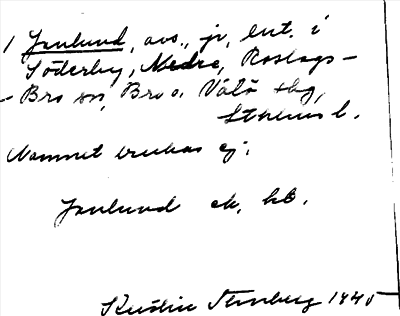 1 Janlund, avs., jr, but. i
Söderby, Nedre, Roslags-
-Bro sn, Bro o. Vätö skg,
Sthlms l.
Namnet brukas ej.
Janlund ek. kb.
Kerstin Stenberg 1940